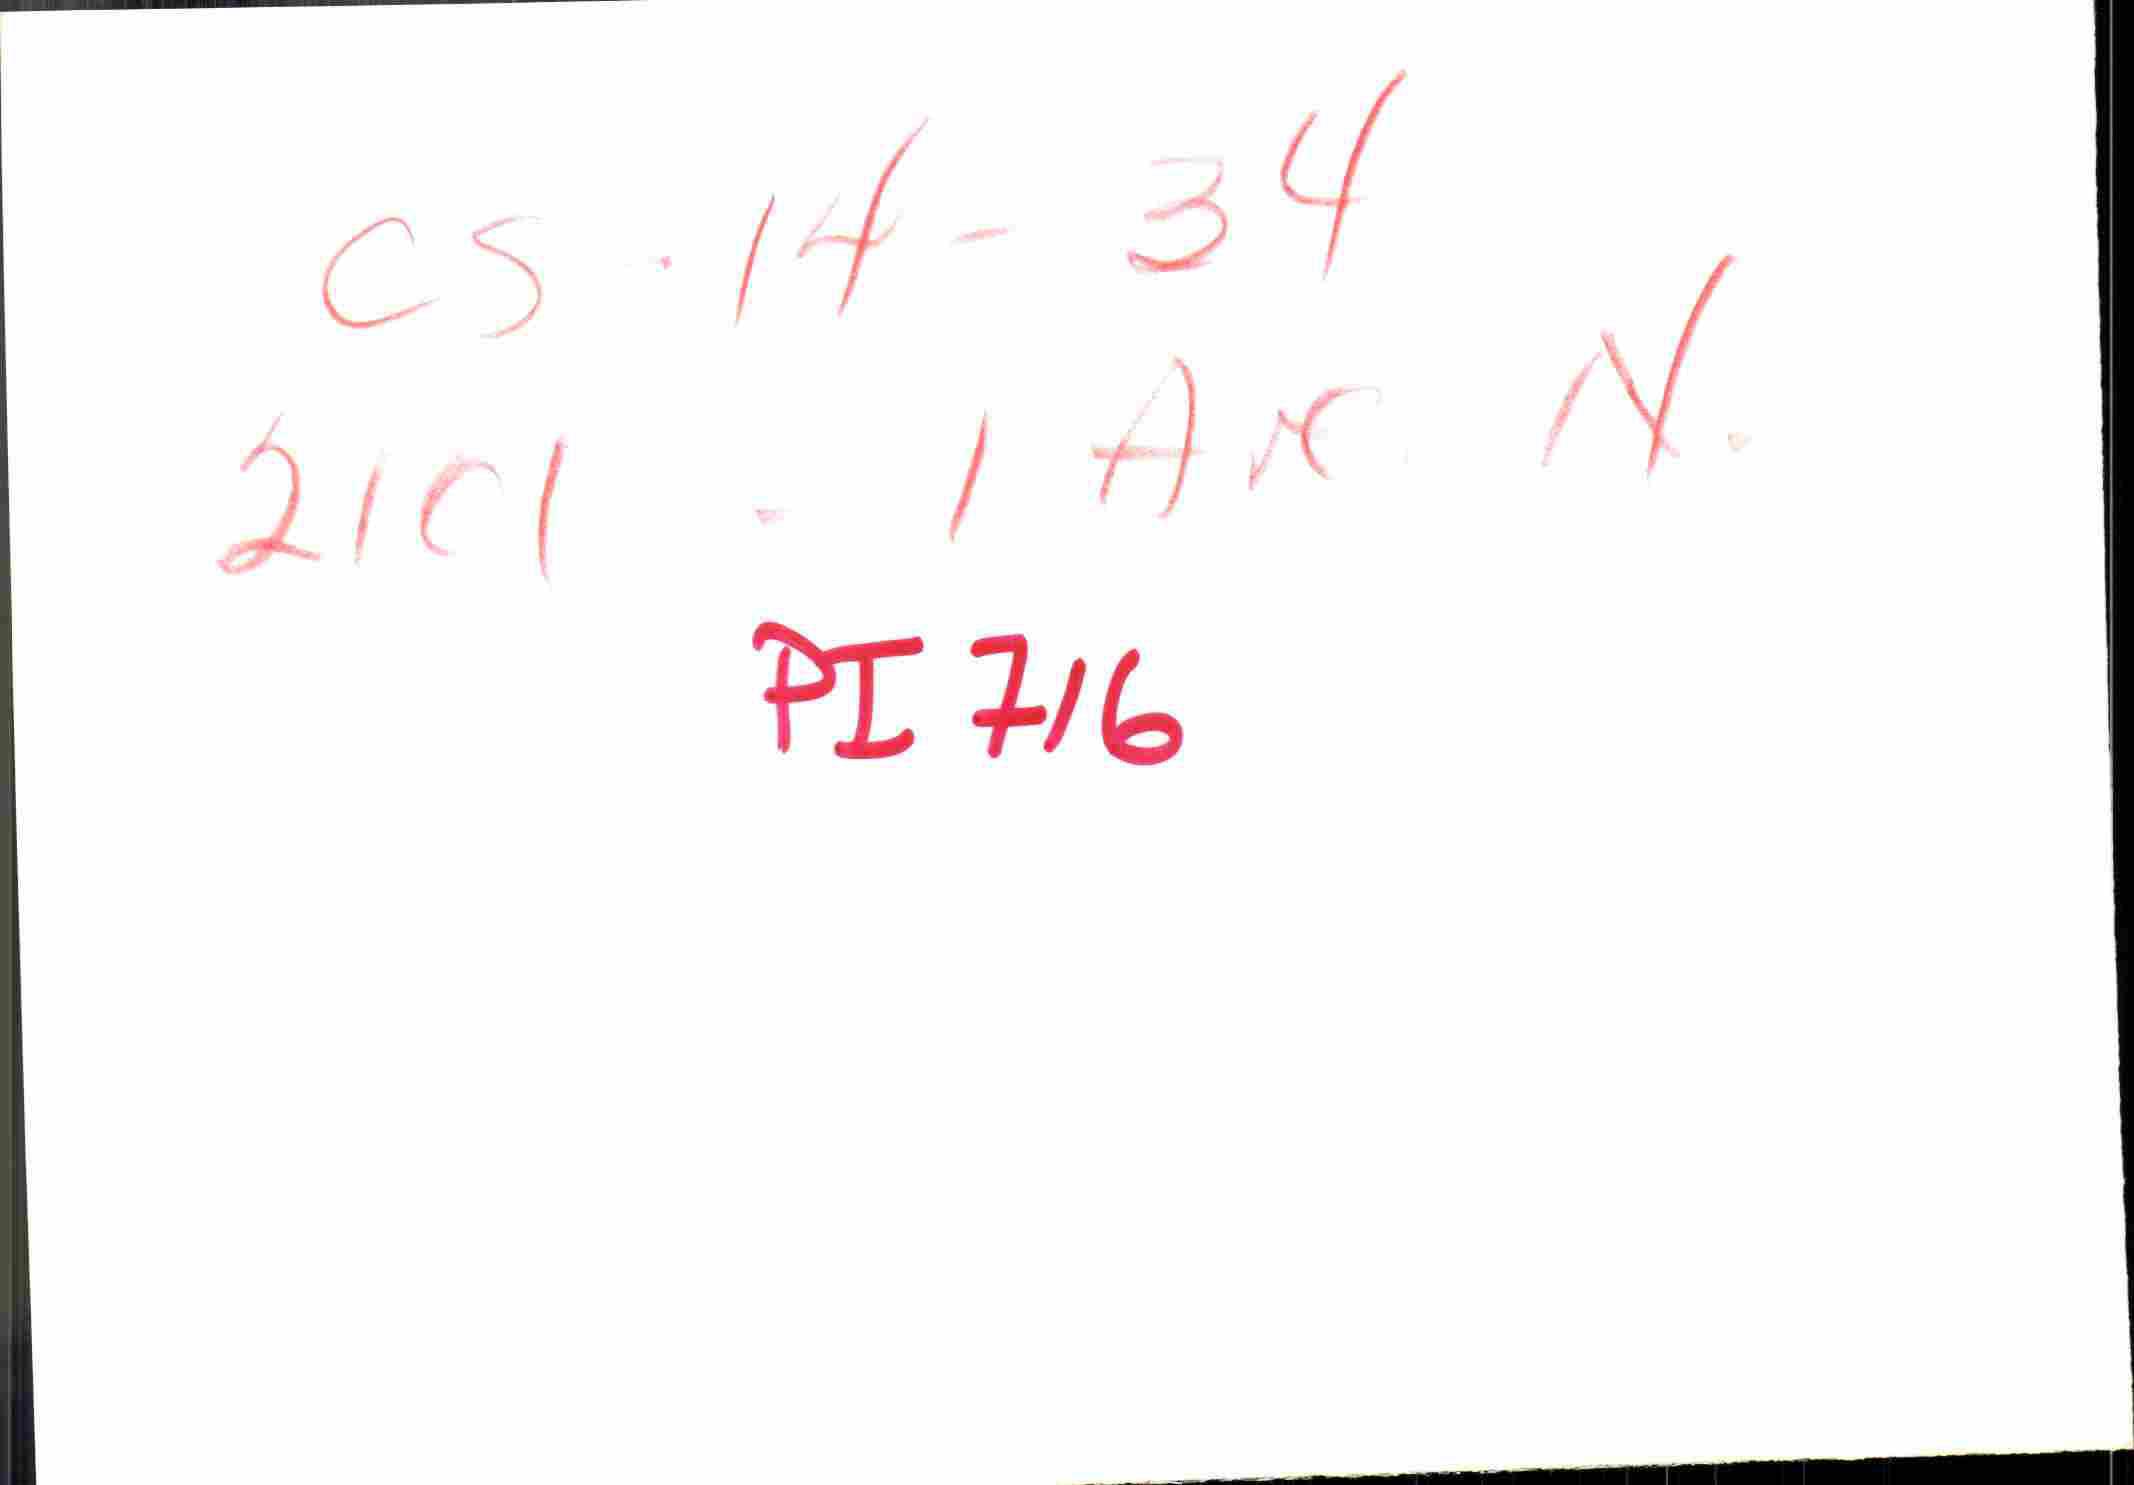 CS. 14 - 34
2101 - 1 Ave. N.
PI 716